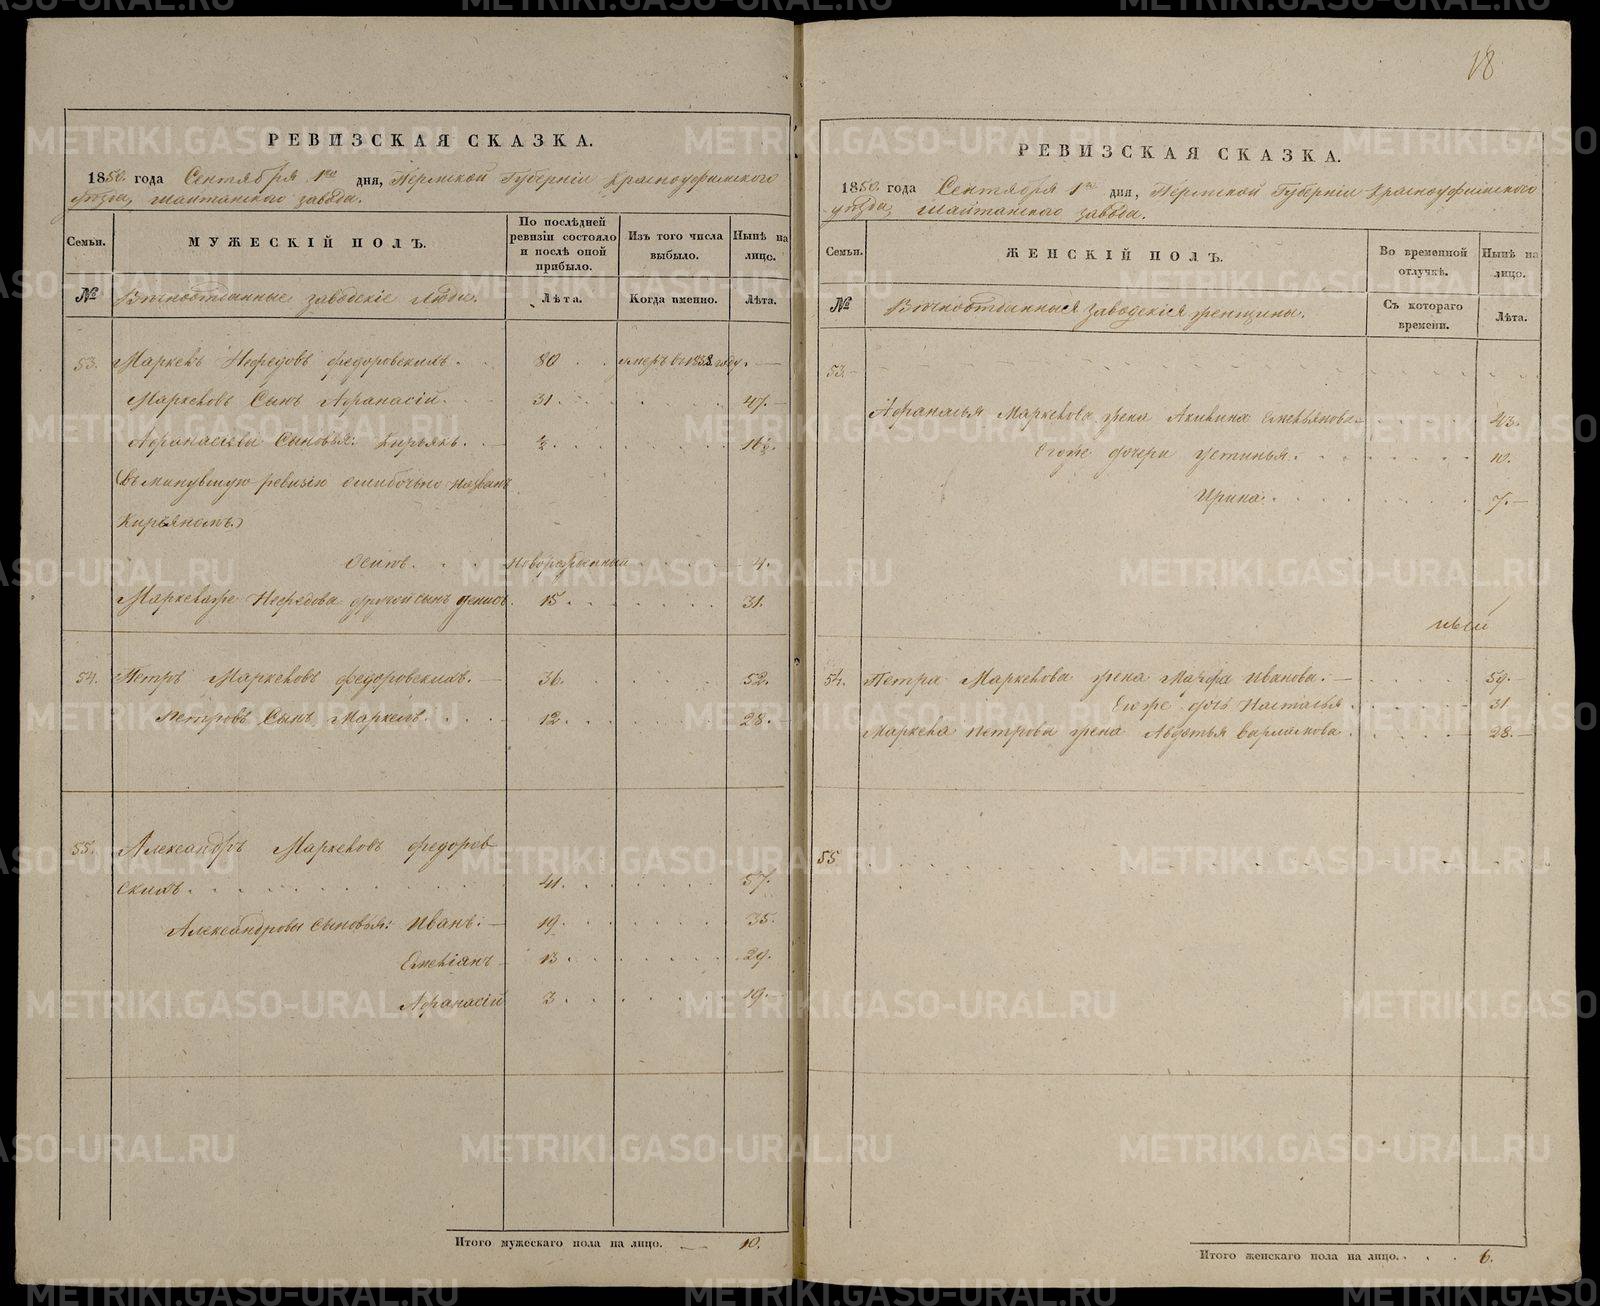 18
РЕВИЗСКАЯ СКАЗКА.
1850 года Сентября 1го дня, Пермской Губерніи Красноуфимскаго
уѣзда, Шайтанскаго завода.
Семьи.
МУЖЕСКІЙ ПОЛЪ.
По послѣдней ревизіи состояло и послѣ оной прибыло.
Изъ того числа выбыло.
Нынѣ на лицо.
№
Вѣчноотданные заводскіе люди.
Лѣта.
Когда именно.
Лѣта.
53. Маркелъ Нефедовъ Федоровскихъ. 80 умеръ въ 1838 году. —
Маркеловъ Сынъ Афанасій. 31. 47.
Афанасіевы Сыновья: Кирьякъ. ½ 16½
(въ минувшую ревизію ошибочно названъ
Кирьяномъ.)
Осипъ. Новорожденный 4.
Маркела же Нефедова другой сынъ Денисъ. 15. 31.
54. Петръ Маркеловъ Федоровскихъ. — 36. 52.
Петровъ Сынъ Маркелъ. 12. 28.
55. Александръ Маркеловъ Федоров
скихъ. 41. 57.
Александровы сыновья: Иванъ. — 19. 35.
Емеліанъ 13. 29.
Афанасій 3. 19.
Итого мужескаго пола на лицо. — 10.
РЕВИЗСКАЯ СКАЗКА.
1850 года Сентября 1го дня, Пермской Губерніи Красноуфимскаго
уѣзда, Шайтанскаго завода.
Семьи.
ЖЕНСКІЙ ПОЛЪ.
Во временной отлучкѣ.
Нынѣ на лицо.
№
Вѣчноотданныя заводскія женщины.
Съ котораго времени.
Лѣта.
53. —
Афанасья Маркелова жена Акилина Емельянова. 43.
Его же дочери Устинья. 10.
Ирина. 7. —
54. Петра Маркелова жена Марфа Иванова. — 59. —
Его же дочь Настасья. 31
Маркела Петрова жена Авдотья Варламова. 28. —
55.
Итого женскаго пола на лицо. 6.
METRIKI.GASO-URAL.RU